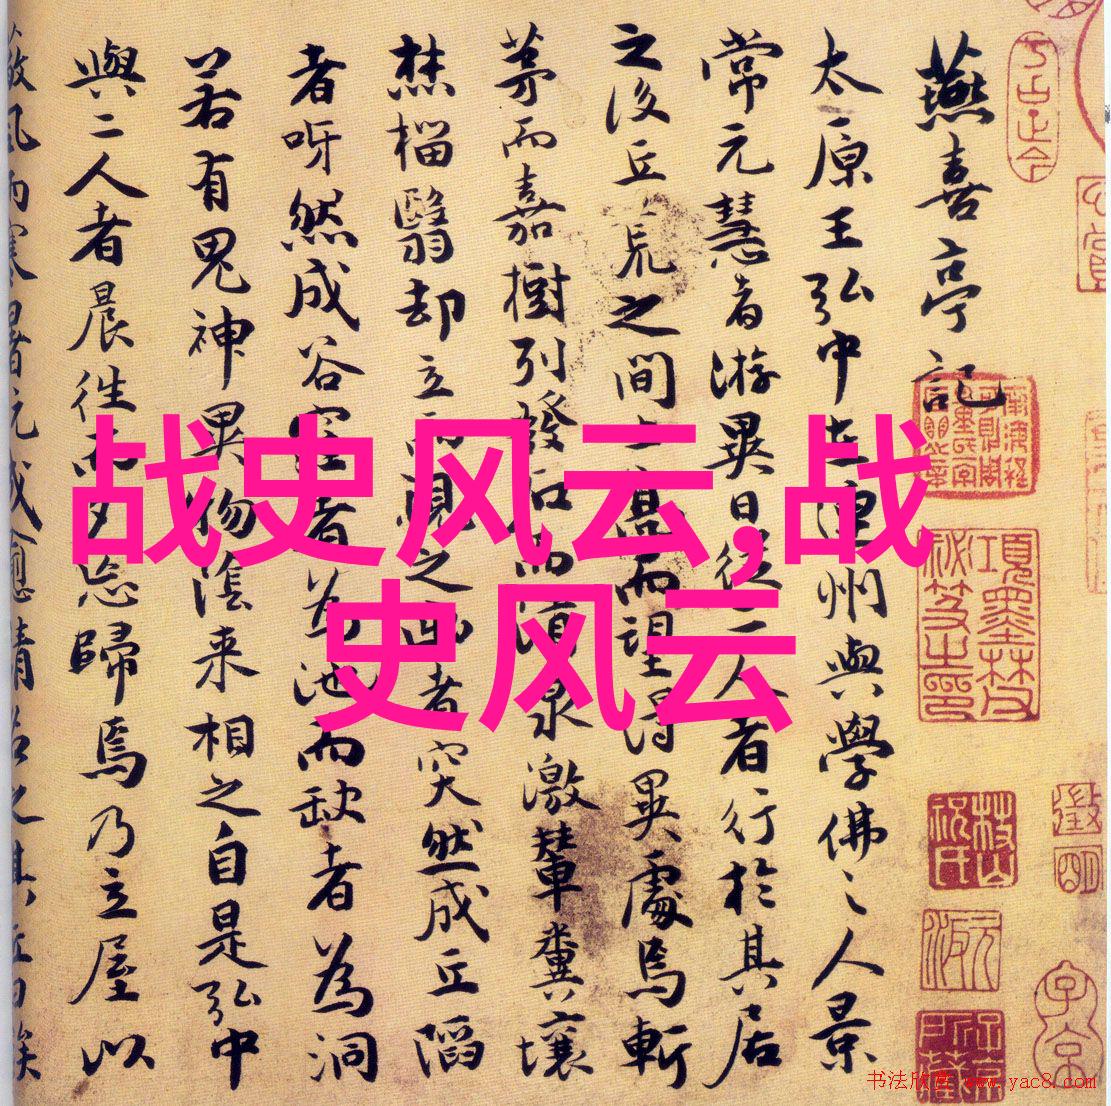 燕喜亭記
太原王弘中在連州與學佛之人景
常元慧者游異日從二人者行於其居
之後丘荒之間上高而望得異處焉斬
茅而嘉樹列發石而清泉激輦糞壤
焚椔翳却立而視之出者突然成丘陷
者呀然成谷窪者為池而缺者為洞
若有鬼神異物陰来相之自是弘中
與二人者晨往而夕忘歸焉乃立屋以
战史风云,战
史风云
徵明
子京
书法欣赏 www.yac8.com